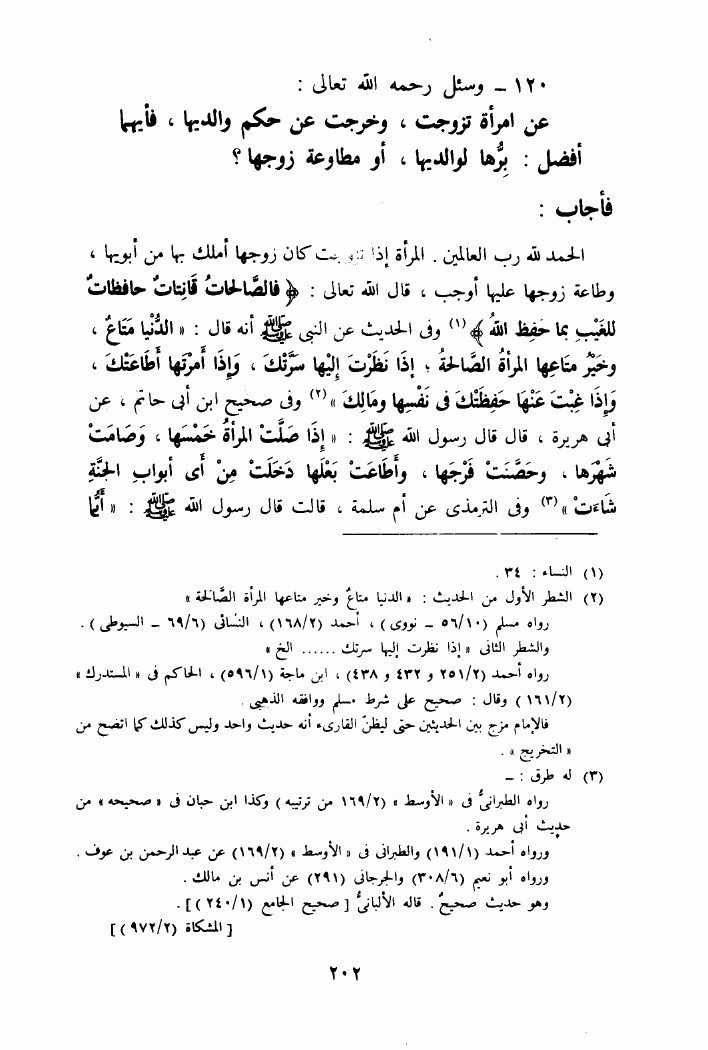 ١٢٠ – وسئل رحمه الله تعالى :
عن امرأة تزوجت ، وخرجت عن حكم والديها ، فأيهما
أفضل : بِرُّها لوالديها ، أو مطاوعة زوجها ؟
فأجاب :
الحمد لله رب العالمين . المرأة إذا كان زوجها أملك بها من أبويها ،
وطاعة زوجها عليها أوجب ، قال الله تعالى : ﴿ فالصَّالحاتُ قَانِتاتٌ حافظاتٌ
للغَيْبِ بما حَفِظ اللهُ ﴾ (١) وفى الحديث عن النبى ﷺ أنه قال : « الدُّنْيا مَتَاعٌ ،
وخَيْرُ متَاعِها المرأةُ الصَّالحةُ ؛ إذَا نَظَرْتَ إليْها سَرَّتْكَ ، وَإذَا أمرْتَها أطَاعَتْكَ ،
وَإذَا غِبْتَ عَنْهَا حَفِظَتْكَ فى نَفْسِها ومَالِكَ » (٢) وفى صحيح ابن أبى حاتم ، عن
أبى هريرة ، قال قال رسول الله ﷺ : « إذَا صَلَّتْ المرأةُ خَمْسَها ، وَصَامَتْ
شَهْرَها ، وحَصَّنَتْ فَرْجَها ، وأطَاعَتْ بَعْلَها دَخَلَتْ مِنْ أى أبوابِ الجَنَّةِ
شَاءَتْ » (٣) وفى الترمذى عن أم سلمة ، قالت قال رسول الله ﷺ : « أيُّما
(١) النساء : ٣٤ .
(٢) الشطر الأول من الحديث : « الدنيا متاعٌ وخير متاعها المرأة الصَّالحة »
رواه مسلم (٥٦/١٠ – نووى) ، أحمد (١٦٨/٢) ، النسائى (٦٩/٦ – السيوطى) .
والشطر الثانى « إذا نظرت إليها سرتك ...... الخ »
رواه أحمد (٢٥١/٢ و ٤٣٢ و ٤٣٨) ، ابن ماجة (٥٩٦/١) ، الحاكم فى « المستدرك »
(١٦١/٢ ) وقال : صحيح على شرط مسلم ووافقه الذهبى .
فالإمام مزج بين الحديثين حتى ليظنّ القارىء أنه حديث واحد وليس كذلك كما اتضح من
« التخريج » .
(٣) له طرق : –
رواه الطبرانىُّ فى « الأوسط » (١٦٩/٢ من ترتيبه) وكذا ابن حبان فى « صحيحه » من
حديث أبى هريرة .
ورواه أحمد (١٩١/١) والطبرانى فى « الأوسط » (١٦٩/٢) عن عبد الرحمن بن عوف .
ورواه أبو نعيم (٣٠٨/٦) والجرجانى (٢٩١) عن أنس بن مالك .
وهو حديث صحيحٌ . قاله الألبانىُّ [ صحيح الجامع (٢٤٠/١ ) ] .
[ المشكاة (٩٧٢/٢) ]
٢٠٢